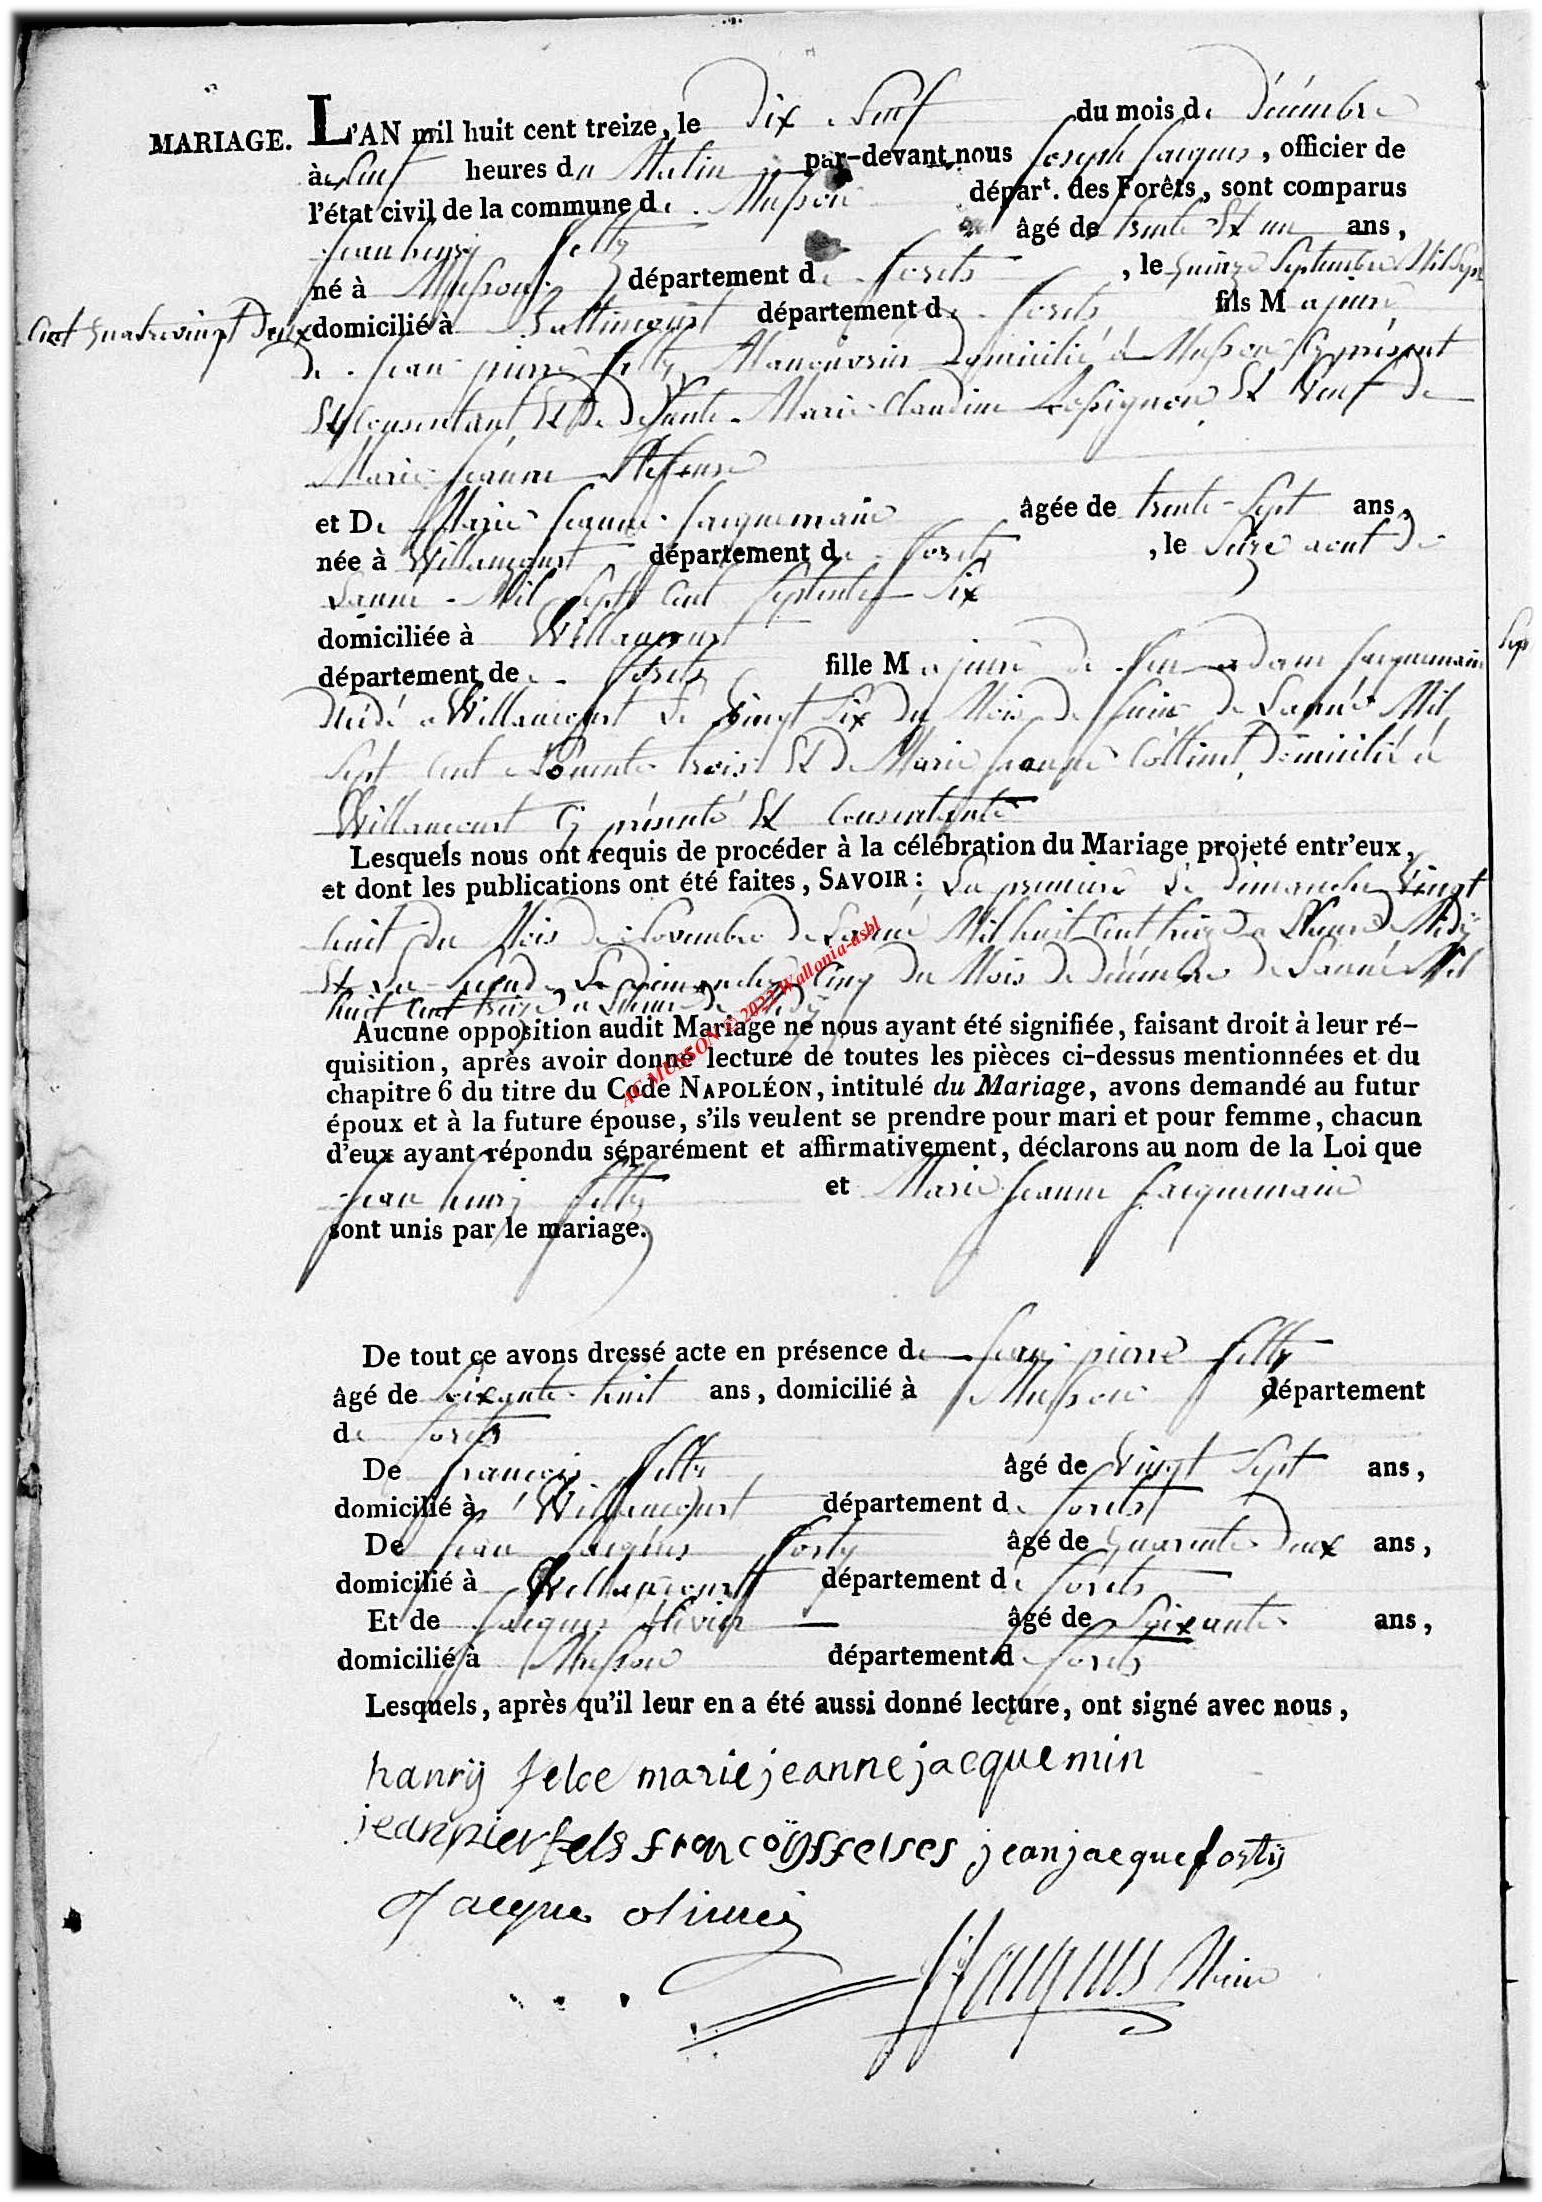 MARIAGE. L'AN mil huit cent treize, le Dix Neuf du mois de Décembre
à Neuf heures du Matin par-devant nous Joseph Jacques, officier de
l'état civil de la commune de Musson départ. des Forêts, sont comparus
Jean henry felly âgé de trente Et un ans,
né à Musson département de forets, le quinze Septembre Mil Sept
Cent quatrevingt Deux domicilié à Battincourt département de forets fils Majeur
de Jean pierre felly Manouvrier Domicilié à Musson Cy présent
Et Consentant Et De Defunte Marie Claudine Rossignon Et Veuf De
Marie Jeanne
et De Marie Jeanne Jacquemain âgée de trente-Sept ans,
née à Willancourt département de forets, le Seize aout De
Lanné Mil Sept Cent Septente Six
domiciliée à Willancourt
département de forets fille Majeure de feu adam Jacquemain
Décédé a Willancourt Le Vingt Six Du Mois De Juin De Lannéé Mil
Sept Cent Nonente trois Et De Marie Jeanne Collinet Domicilié à
Willancourt Cy présente Et Consentente
Lesquels nous ont requis de procéder à la célébration du Mariage projeté entr'eux,
et dont les publications ont été faites, SAVOIR: La premiere Le Dimanche Vingt
huit Du Mois De Novembre De Lanné Mil huit Cent treize a Lheure De Midÿ
Et La Seconde Le Dimanche Cinq Du Mois De Décembre De Lanné Mil
huit Cent treize a Lheure De Midÿ
Aucune opposition audit Mariage ne nous ayant été signifiée, faisant droit à leur ré-
quisition, après avoir donné lecture de toutes les pièces ci-dessus mentionnées et du
chapitre 6 du titre du Code NAPOLÉON, intitulé du Mariage, avons demandé au futur
époux et à la future épouse, s'ils veulent se prendre pour mari et pour femme, chacun
d'eux ayant répondu séparément et affirmativement, déclarons au nom de la Loi que
Jean henry felly et Marie Jeanne Jacquemain
sont unis par le mariage.
De tout ce avons dressé acte en présence de Jean pierre felly
âgé de Soixante huit ans, domicilié à Musson département
de forets
De françois felly âgé de Vingt Sept ans,
domicilié à Willancourt département de forets
De Jean Jacques forty âgé de quarente Deux ans,
domicilié à Willancourt département de forets
Et de Jacques olivier âgé de Soixante ans,
domicilié à Musson département de forets
Lesquels, après qu'il leur en a été aussi donné lecture, ont signé avec nous,
hanrÿ felce marie jeanne jacquemin
jeanpier fels francoÿs felses jeanjacque fortÿ
Jacque olivier
J Jacques Maire
AC MUSSON © 2022 Wallonia-asbl
Sept